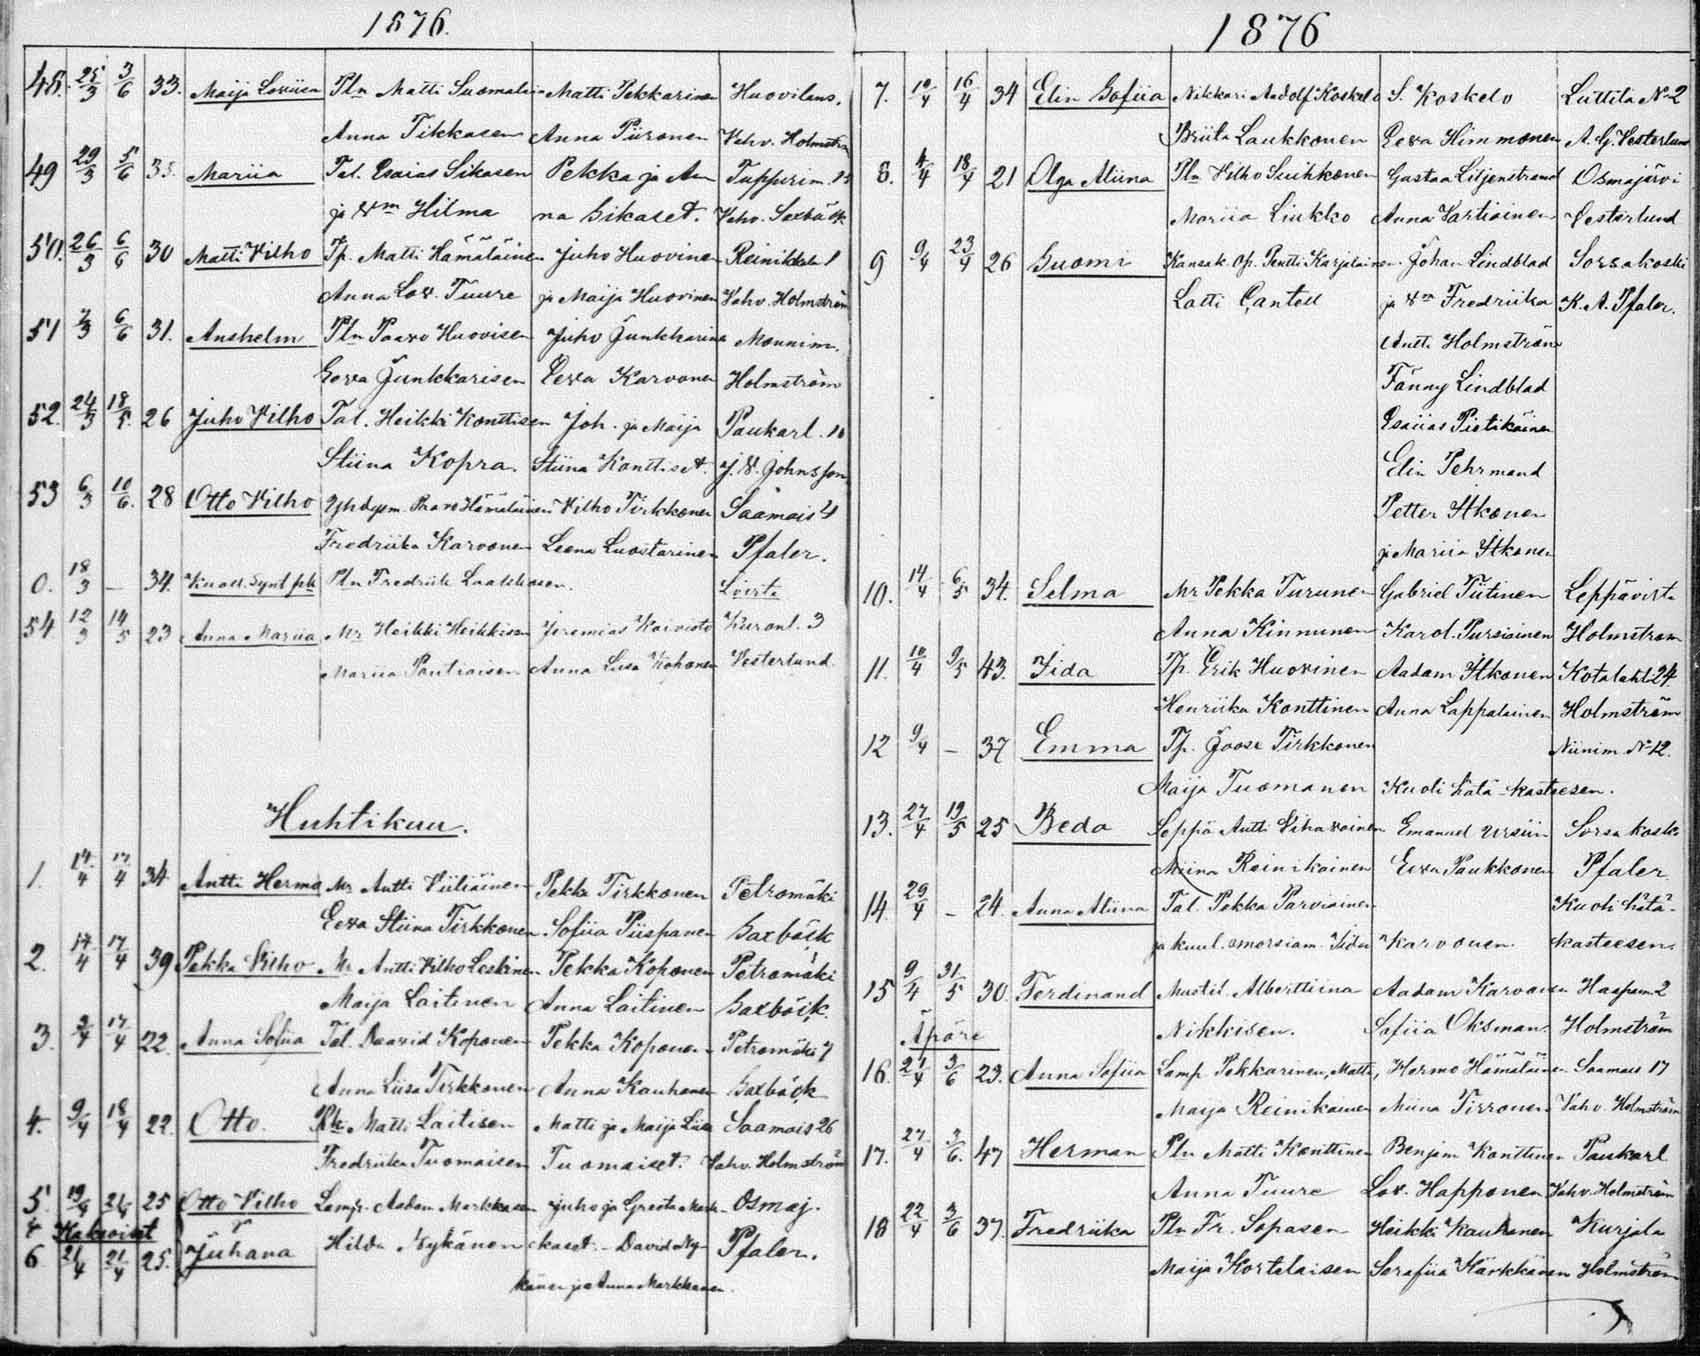 1876.
48. 25/3 3/6 33. Maija Loviisa Pln Matti Suomalai- Matti Pekkarinen Huovilans.
Anna Tikkasen Anna Piironen Vahv. Holmström
49 29/3 5/6 35. Mariia Tal. Esaias Sikasen Pekka ja An Tappurim. 
ja vm Hilma na Sikaset. Vahv. Saxbäck
50. 26/3 6/6 30 Matti Vilho Tp. Matti Hämäläinen Juho Huovinen Reinikkal 1
Anna Lov. Tuure ja Maija Huovinen Vahv. Holmström
51 2/3 6/6 31. Anshelm Pln Paavo Huovisen Juho Junkkarinen Mounim.
Eeva Junkkarisen Eeva Karvonen Holmström
52. 24/3 18/5. 26 Juho Vilho Tal. Heikki Konttisen Joh. ja Maija Paukarl. 10
Stiina Kopra. Stiina Konttiset. J. V. Johnsson
53 6/3 10/6. 28 Otto Vilho Yhdysm. Paavo Hämäläinen Vilho Tirkkonen Saamais 4
Fredriika Karvonen Leena Luostarinen Pfaler.
0. 18/3 – 34. Kuoll. synt. Pln Fredrik Laakkosen. Lvirta
54. 12/3 14/5 23 Anna Mariia Mr Heikki Heikkisen Jeremias Koivisto Kuronl. 3
Mariia Pantiaisen Anna Liisa Kohonen Vesterlund.
Huhtikuu.
1. 14/4 17/4 34 Antti Herma Mr Antti Viiliäinen Pekka Tirkkonen Petromäki
Eeva Stiina Tirkkonen Sofiia Piispanen Saxbäck
2. 14/4 17/4 39 Pekka Vilho Mr Antti Vilho Leskinen Pekka Koponen Petromäki
Maija Laitinen Anna Laitinen Saxbäck.
3. 2/4 17/4 22. Anna Sofiia Tal. Daavid Koponen Pekka Koponen Petromäki 7
Anna Liisa Tirkkonen Anna Kauhanen Saxbäck
4. 9/4 18/4 22. Otto. Rtt Matti Laitisen Matti ja Maija Liisa Saamais 26
Fredriika Tuomaisen Tuomaiset. Vahv. Holmström
5. 19/4 21/4 25 Otto Vilho Lamp. Aadam Markkasen Juho ja Greeta Mark- Osmaj.
& Kaksoiset
6. 21/4 21/4 25. Juhana Hilda Nykänen kaset. – David Ny- Pfaler.
känen ja Anna Markkanen.
1876
7. 10/4 16/4 34 Elin Sofiia Nikkari Aadolf Koskelo S. Koskelo Luttila No 2
Briita Laukkonen Eeva Himmonen A. G. Vesterlund
8. 4/4 18/4 21 Olga Miina Pln Vilho Suihkonen Gustaa Liljenstrand Osmajärvi
Mariia Liukko Anna Vartiainen Vesterlund
9 9/4 23/4 26 Suomi Kansak. Op. Pentti Karjalainen Johan Lindblad Sorsakoski
Lotti Cantell ja vm Fredriika K. A. Pfaler.
Antti Holmström
Fanny Lindblad
Esaiias Pietikäinen
Elin Pehrmand
Petter Itkonen
ja Mariia Itkonen
10. 14/4 6/5 34. Selma Mr Pekka Turunen Gabriel Tiitinen Leppävirt.
Anna Kinnunen Karol. Pursiainen Holmström
11. 10/4 9/5 43. Iida Tp. Erik Huovinen Aadam Itkonen Kotalahti 24.
Henriika Konttinen Anna Lappalainen Holmström
12 9/4 – 37 Emma Tp. Joose Tirkkonen Niinim. No 12.
Maija Tuomanen Kuoli hätä-kasteesen.
13. 27/4 19/5 25 Beda Seppä Antti Vihavainen Emanuel Ursiin Sorsakosk.
Miina Reinikainen Eeva Paukkonen Pfaler
14. 29/4 – 24. Anna Miina Tal. Pekka Parviainen Kuoli hätä-
ja kuul. amorsiam Iida Karvonen. kasteesen.
15 9/4 31/5 30. Ferdinand Mustil. Alberttiina Aadam Karvonen Haapam 2
Äpäre Nikkisen. Sofiia Oksman. Holmström
16. 21/4 3/6 23. Anna Sofiia Lamp. Pekkarinen, Matti, Hermo Hämäläinen Saamais 17
Maija Reinikainen Miina Tirronen Vahv. Holmström
17. 27/4 3/6. 47 Herman Pln Matti Konttinen Benjam Konttinen Paukarl
Anna Tuure Lov. Happonen Vahv. Holmström
18 22/4 3/6 37. Fredriika Pln Fr. Sopasen Heikki Kauhanen Kurjala
Maija Kortelaisen Serafiia Kärkkäinen Holmström